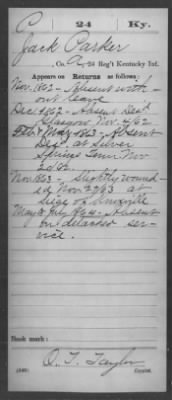 P 24 Ky.
Jack Parker
, Co. A, 24 Reg't Kentucky Inf.
Appears on Returns as follows:
Nov. 1862 - Absent with-
out leave
Dec. 1862 - Absent
Glasgow Nov. 7/62
Feb. & May 1863 - Absent
Silver
Springs Tenn Nov
20/62
Nov. 1863 - Slightly wound
ed Nov. 27/63 at
Siege of Knoxville
May & July 1864 - Absent
on detached ser-
vice.
Book mark:
O. T. Taylor
Copyist.